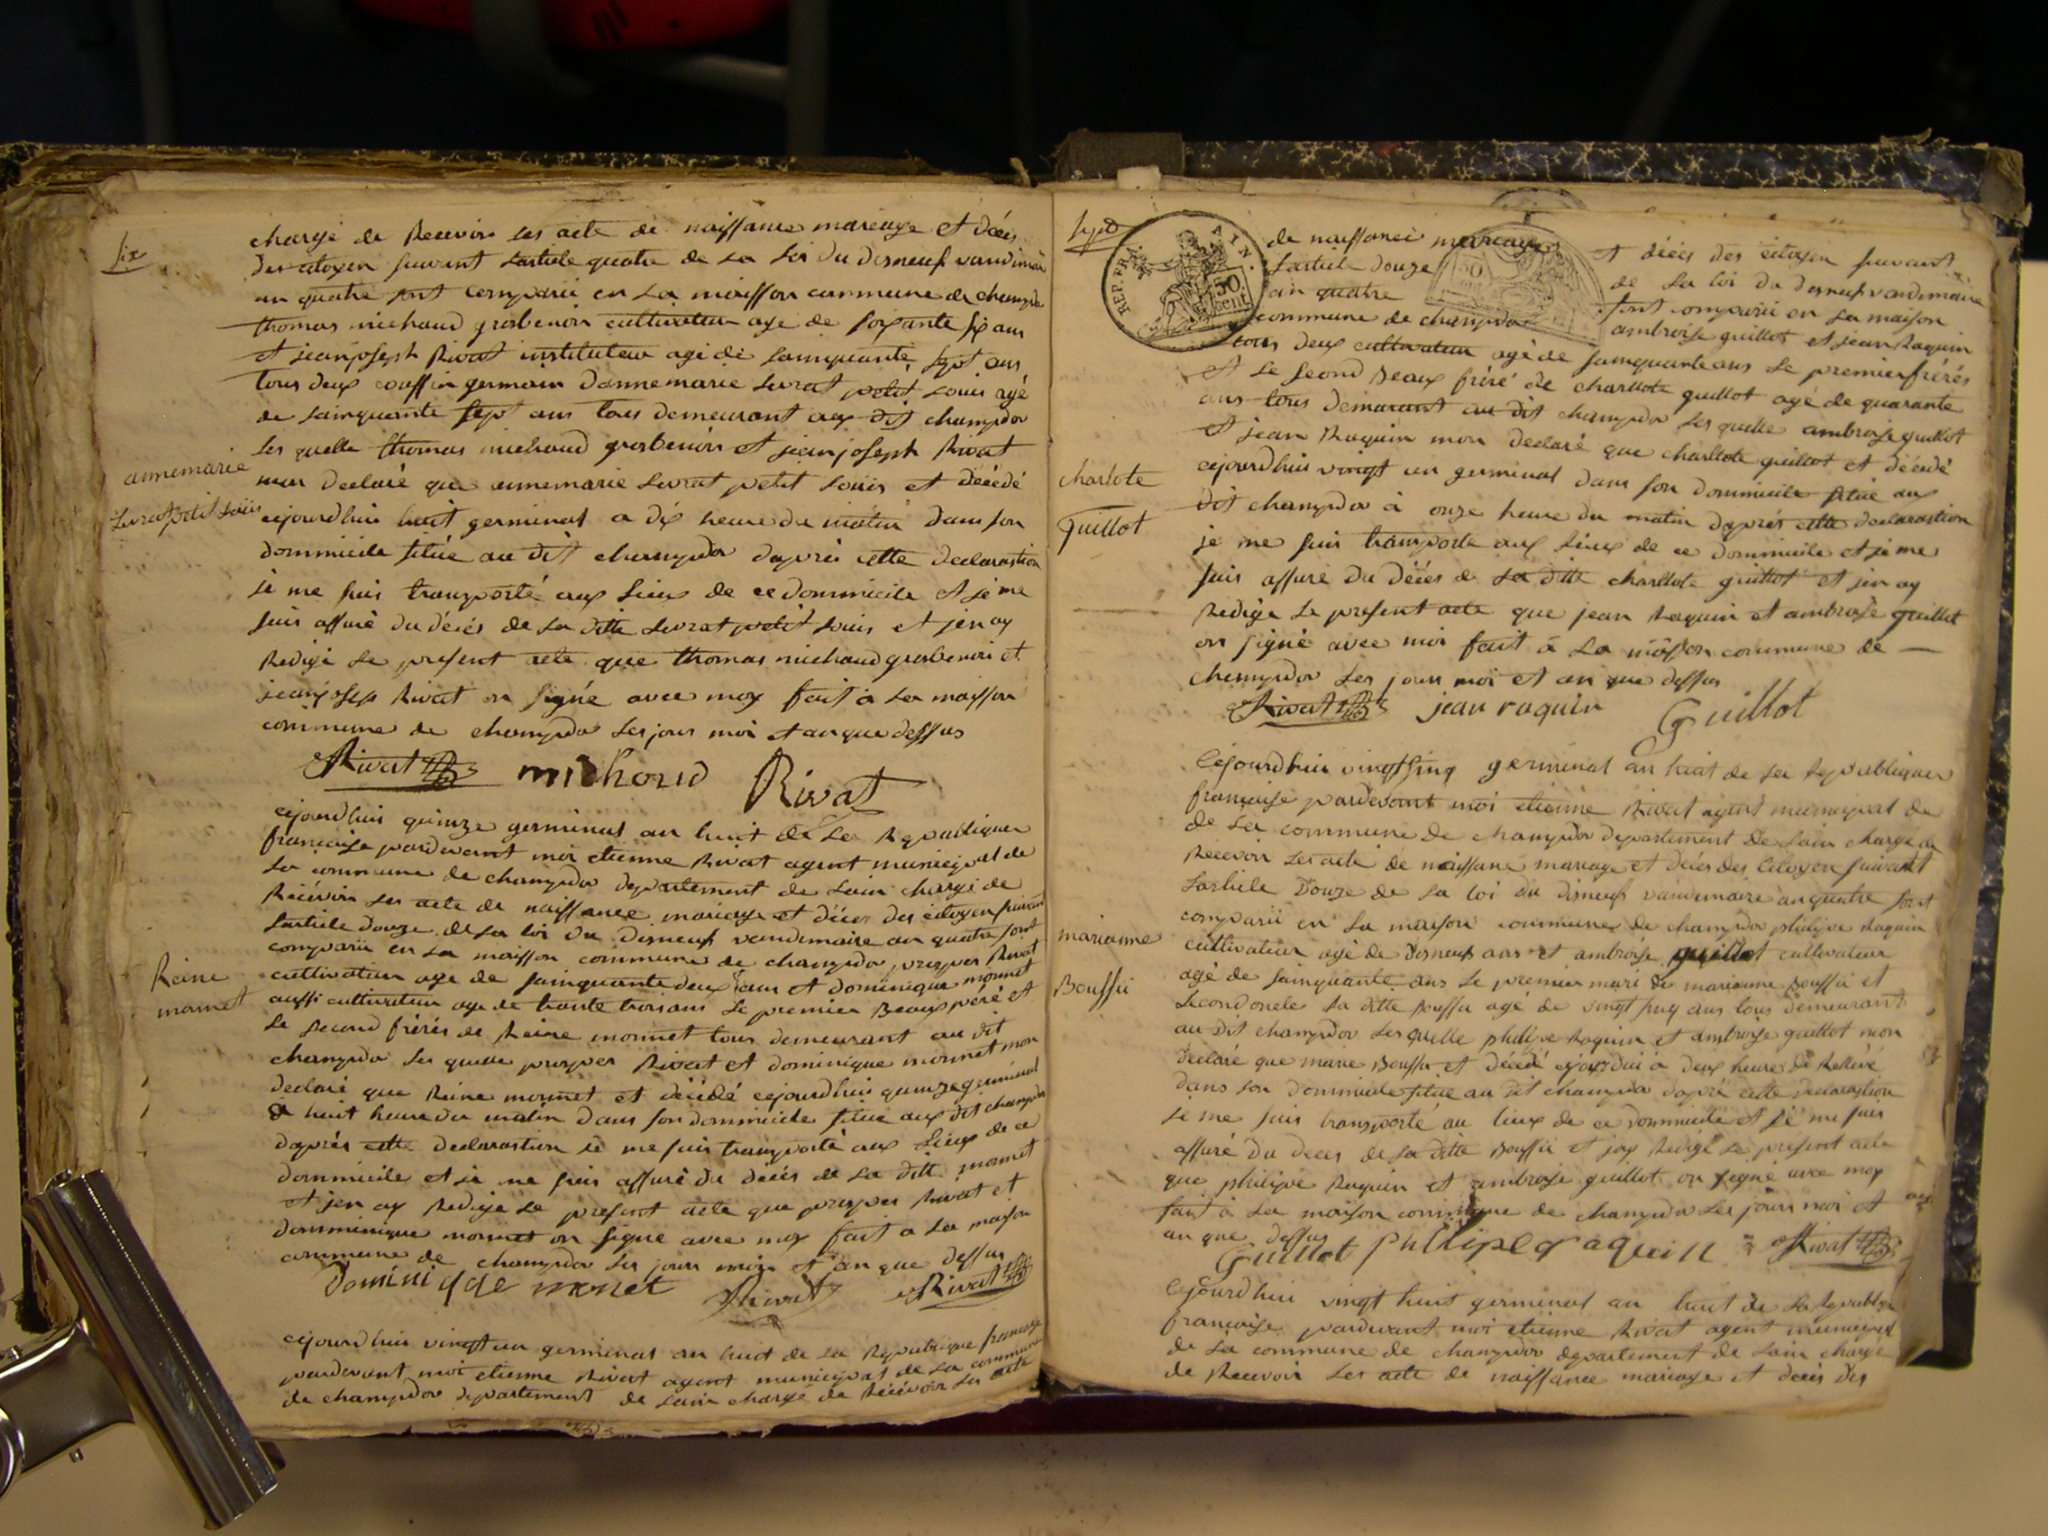 six
chargé de Recevoir les acte de naissance mariage et décès
des citoyen suivant l'article quatre de la loi du disneuf vandimère
an quatre sont comparü en la maisson commune de champdor
thomas michaud grosbenoir cultivateur age de soixante six ans
et jeanjoseph Rivat instituteur agé de sainquante sept ans
tous deux coussin germain dannemarie livrat petit Louis agé
de sainquante sept ans tous demeurant aux dit champdor
les quelle thomas michaud grosbenoir et jeanjoseph Rivat
annemarie
livrat petit Louis
mon declaré que annemarie livrat petit Louis et décédé
cejourdhui huit germinal a dix heure du matin dans son
dommicile situé au dit champdor daprès cette declarastion
je me suis transporté aux lieux de ce dommicile et je me
suis assuré du décés de la ditte livrat petit Louis et jen ay
Redigé le present acte que thomas michaud grosbenoir et
jeanjoseph Rivat on signé avec moy fait a la maisson
commune de champdor les jour moi et an que dessus
Rivat michoud Rivat
cejourdhui quinze germinal an huit de la Republique
française pardevant moi etienne Rivat agent municipal de
la commune de champdor departement de Lain chargé de
Recévoir les acte de naissance mariage et décés des citoyen suivant
l'article douze de la loi du disneuf vandemaire an quatre sont
comparü en la maisson commune de champdor prosper Rivat
Reine
monnet
cultivateur age de sainquante deux ans et dominique monnet
aussi cultivateur age de trante trois ans le premier Beaux peré et
le second frérés de Reine monnet tous demeurant au dit
champdor les quelle prosper Rivat et dominique monnet mon
declaré que Reine monnet et décédé cejourdhui quinze germinal
a huit heure du matin dans son dommicile situé aux dit champdor
daprés cette declarastion je me suis transporté aux Lieux de ce
dommicile et je me suis assuré du décés de la ditte monnet
et jen ay Redigé le present acte que prosper Rivat et
domminique monnet on signe avec moy fait a la maison
commune de champdor les jours moi et an que dessus
Dominique monet Rivat Rivat
cejourdhui vingt un germinal an huit de la Republique française
pardevant moi etienne Rivat agent municipal de la commune
de champdor departement de Lain chargé de Recevoir les acte
sept
REP. FRA. AIN.
50 cent
de naissance mariage et décés des citoyen suivant
l'article douze de la loi du disneuf vandemaire
an quatre sont comparü en la maison
commune de champdor ambroise guillot et jean Raquin
tous deux cultivateur agé de sainquante ans le premier frérés
et le second Beaux fréré de charllote guillot agé de quarante
ans tous demeurant au dit champdor les quelle ambroise guillot
et jean Raquin mon declaré que charllote guillot et décédé
charlote
Guillot
cejourdhui vingt un germinal dans son dommicile situé aux
dit champdor à onze heure du matin daprés cette declarastion
je me suis transporté aux lieux de ce dommicile et je me
suis assuré du décés de la ditte charllote guillot et jen ay
Redigé le present acte que jean Raquin et ambroise guillot
on signé avec moi fait à la maison commune de
champdor les jour moi et an que dessus
Rivat jean raquin Guillot
Cejourdhui vingt sinq germinal an huit de la Republique
française pardevant moi etienne Rivat agent municipal de
de la commune de champdor departement de Lain chargé de
Recevoir les acte de naissance mariage et décés des citoyen suivant
l'article Douze de la loi du disneuf vandemaire an quatre sont
comparü en la maison commune de champdor philipe Raquin
marianne
Bouffü
cultivateur agé de disneuf ans et ambroise guillot cultivateur
agé de sainquante ans le premier mari de marianne Bouffü et
second oncle la ditte Bouffü agé de vingt ans tous demeurant
au dit champdor les quelle philipe Raquin et ambroise guillot mon
declaré que marie Bouffü et décédé cejourdui à deux heure de
dans son dommicile situé au dit champdor dapré cette declarastion
je me suis transporté au lieux de ce dommicile et je me suis
assuré du deces de la ditte Bouffü et jay Redigé le present acte
que philipe Raquin et ambroise guillot on signé avec moy
fait à la maison commune de champdor les jours moi et
an que dessus
Guillot philipe raquin Rivat
Cejourdhui vingt huit germinal an huit de la Republique
française pardevant moi etienne Rivat agent municipal
de la commune de champdor departement de Lain chargé
de Recevoir les acte de naissance mariage et décés des